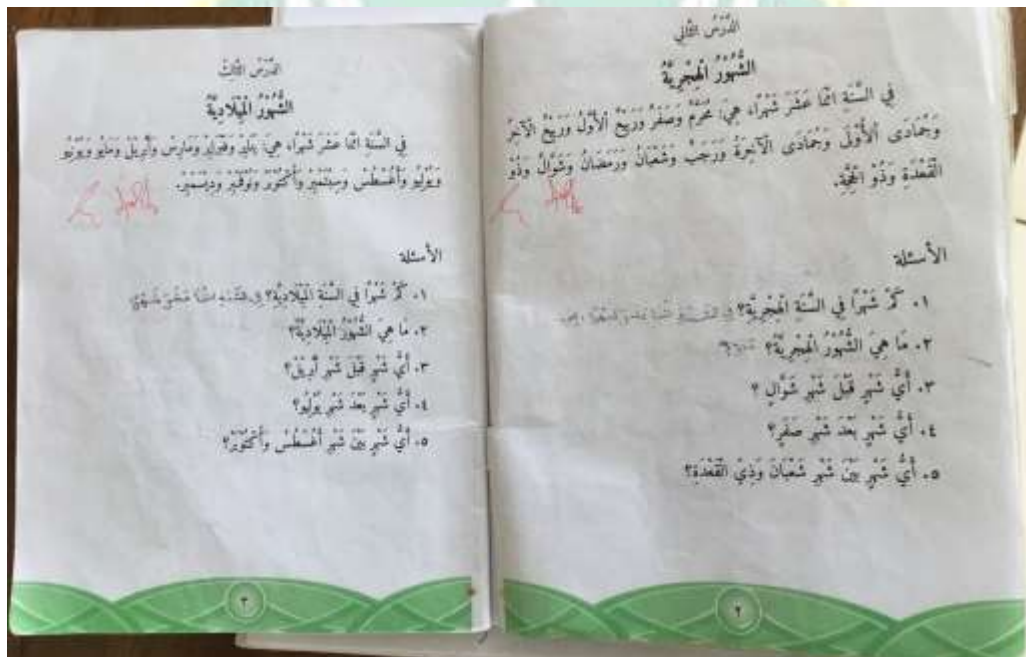 الدَّرْسُ الثَّانِي
الشُّهُوْرُ الْهِجْرِيَّةُ
فِي السَّنَةِ اثْنَا عَشَرَ شَهْرًا، هِيَ: مُحَرَّمٌ وَصَفَرٌ وَرَبِيْعُ الْأَوَّلُ وَرَبِيْعُ الْآخِرُ
وَجُمَادَى الْأُوْلَى وَجُمَادَى الْآخِرَةُ وَرَجَبُ وَشَعْبَانُ وَرَمَضَانُ وَشَوَّالُ وَذُو
الْقَعْدَةِ وَذُو الْحِجَّةِ.
الأسئلة
١. كَمْ شَهْرًا فِي السَّنَةِ الْهِجْرِيَّةِ؟
٢. مَا هِيَ الشُّهُوْرُ الْهِجْرِيَّةُ؟
٣. أَيُّ شَهْرٍ قَبْلَ شَهْرِ شَوَّالٍ ؟
٤. أَيُّ شَهْرٍ بَعْدَ شَهْرِ صَفَرٍ؟
٥. أَيُّ شَهْرٍ بَيْنَ شَهْرِ شَعْبَانَ وَذِي الْقَعْدَةِ؟
٢
الدَّرْسُ الثَّالِثُ
الشُّهُوْرُ الْمِيْلَادِيَّةُ
فِي السَّنَةِ اثْنَا عَشَرَ شَهْرًا، هِيَ: يَنَايِرُ وَفِبْرَايِرُ وَمَارِسُ وَأَبْرِيْلُ وَمَايُو وَيُوْنِيُو
وَيُوْلِيُو وَأَغُسْطُسُ وَسِبْتَمْبِرُ وَأُكْتُوْبَرُ وَنُوْفَمْبِرُ وَدِيسَمْبِرُ.
الأسئلة
١. كَمْ شَهْرًا فِي السَّنَةِ الْمِيْلَادِيَّةِ؟ في السنة اثنا عشر شهرا
٢. مَا هِيَ الشُّهُوْرُ الْمِيْلَادِيَّةُ؟
٣. أَيُّ شَهْرٍ قَبْلَ شَهْرِ أَبْرِيْلَ؟
٤. أَيُّ شَهْرٍ بَعْدَ شَهْرِ يُوْلِيُو؟
٥. أَيُّ شَهْرٍ بَيْنَ شَهْرِ أَغُسْطُسْ وَأُكْتُوْبَرْ؟
٣